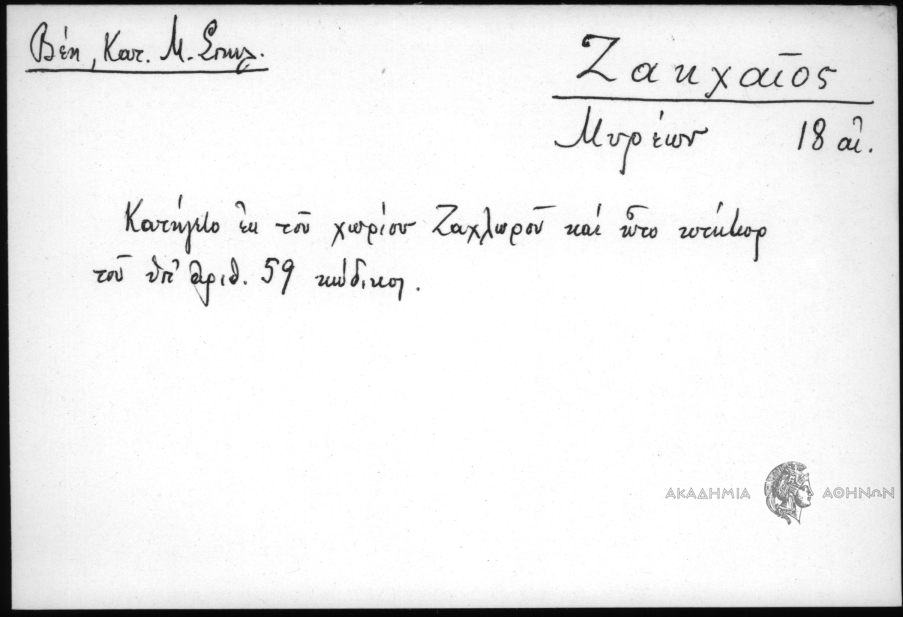 Βέη, Κατ. Μ. Σπηλ.
Ζακχαῖος
Μυρέων 18 αἰ.
Κατήγετο ἐκ τοῦ χωρίου Ζαχλωροῦ καί ἦτο κτήτωρ
τοῦ ὑπ' ἀριθ. 59 κώδικος.
ΑΚΑΔΗΜΙΑ ΑΘΗΝΩΝ